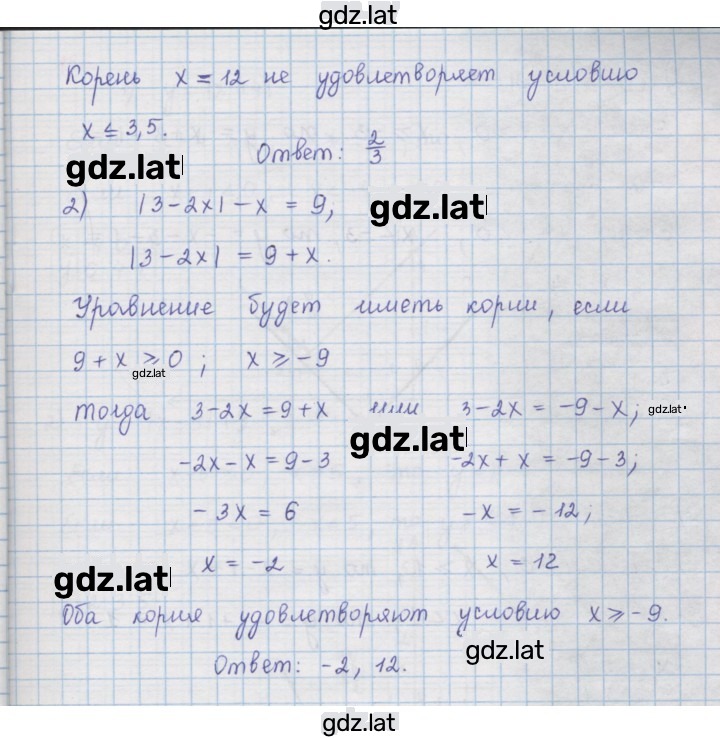 gdz.lat
Корень x = 12 не удовлетворяет условию
x ≤ 3,5.
gdz.lat
Ответ: 2/3
2) |3-2x| - x = 9,
gdz.lat
|3-2x| = 9 + x.
Уравнение будет иметь корни, если
9 + x ⩾ 0 ; x ⩾ -9
gdz.lat
тогда 3-2x = 9+x или 3-2x = -9-x;
gdz.lat
gdz.lat
-2x-x = 9-3 -2x+x = -9-3;
-3x = 6 -x = -12;
x = -2 x = 12
gdz.lat
Оба корня удовлетворяют условию x ⩾ -9.
gdz.lat
Ответ: -2, 12.
gdz.lat